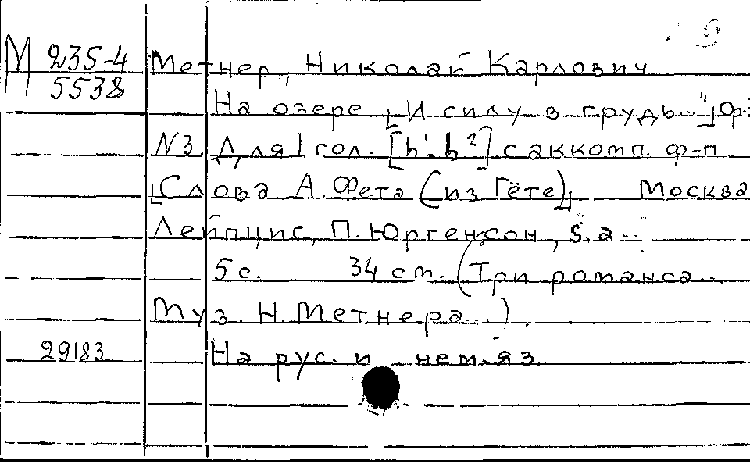 М 235-4
5538
Метнер, Николай Карлович
На озере [„И силу в грудь..."] Ор.
N3 Для 1 гол. [h¹-h²] с аккомп. ф-п
[Слова А. Фета (из Гёте)]. Москва
Лейпциг, П. Юргенсон, s.a..
5 с. 34 см. (Три романса..
Муз. Н. Метнера..)
29183 На рус. и нем. яз.